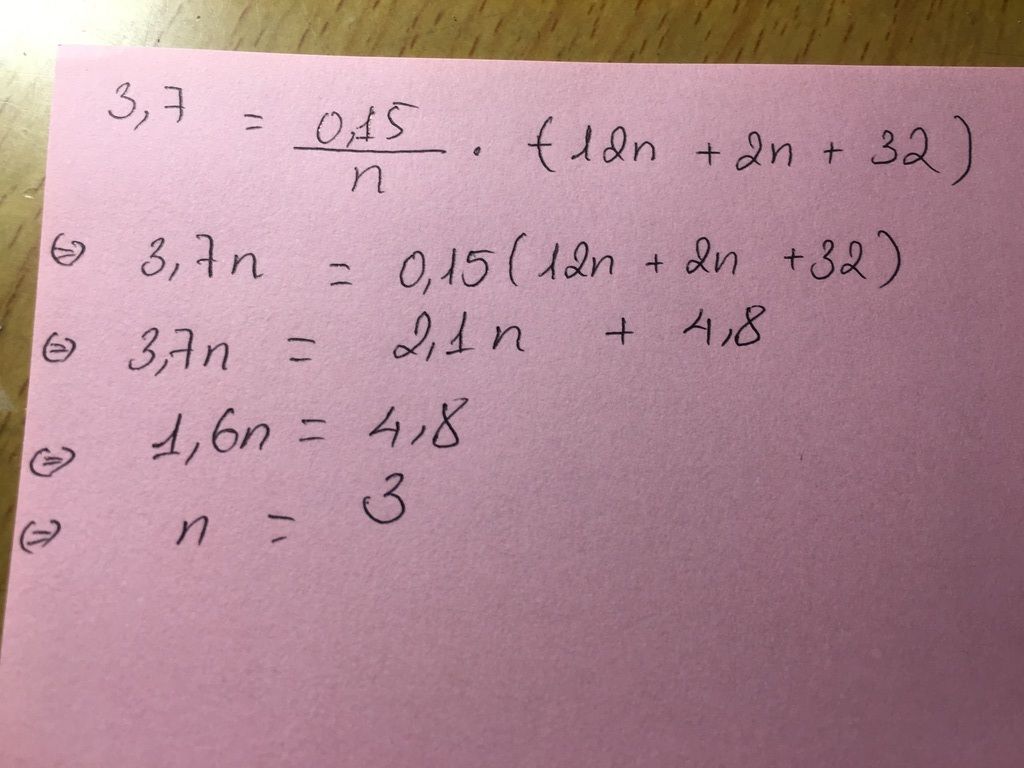 3,7 = 0,15/n · (12n + 2n + 32)
⇔ 3,7n = 0,15(12n + 2n + 32)
⇔ 3,7n = 2,1n + 4,8
⇔ 1,6n = 4,8
⇔ n = 3